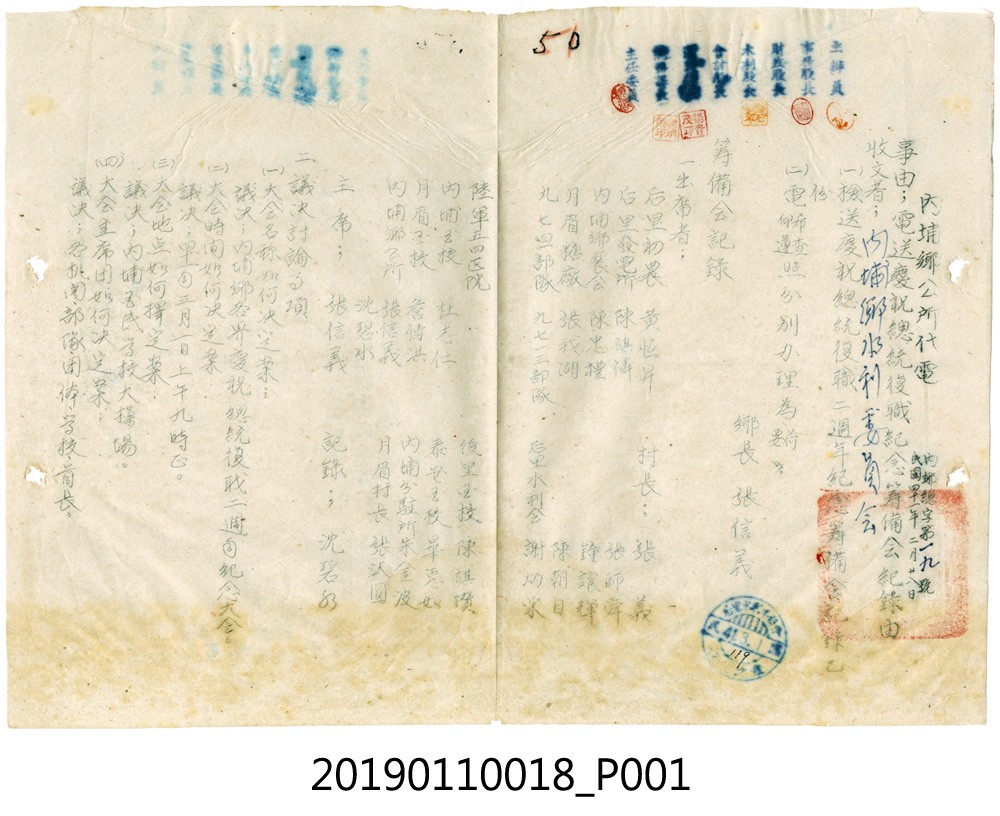 50
主辦員
事務股長
財務股長
水利股長
會計股長
主任委員
內埔鄉公所代電
內鄉總字第一九號
民國四十一年二月廿八日
事由；電送慶祝總統復職紀念籌備會紀錄由
收文者；內埔鄉水利委員會
(一)檢送慶祝總統復職二週年紀念籌備會記錄乙
份
(二)電希查照分別办理為荷
鄉長 張信義
41.3.1
119
籌備會記錄
一出席者；
后里初農 黃恒片 村長；張 義
后里發電所 張師舜
內埔鄉農会 陳忠 鍾讓輝
月眉糖廠 張我湖 陳朝日
九七四部隊 九七三部隊 后里水利会 謝炳
陸軍五四医院
內埔国校 杜 仁 后里国校 陳祺
月眉国校 詹 泰安国校
內埔鄉公所 張信義 內埔分駐所 朱金波
沈碧水 月眉村長 張
主 席；張信義 記錄；沈碧水
二議決討論事項
(一)大会名称如何決定案；
議決；內埔鄉各界慶祝 總統復职二週年紀念大会。
(二)大会時間如何決定案
議決；軍国三月一日上午九時正。
(三)大会地点如何擇定案；
議決；內埔国民学校大操場。
(四)大会主席团如何決定案；
議決；各机関部隊团体学校首長。
20190110018_P001